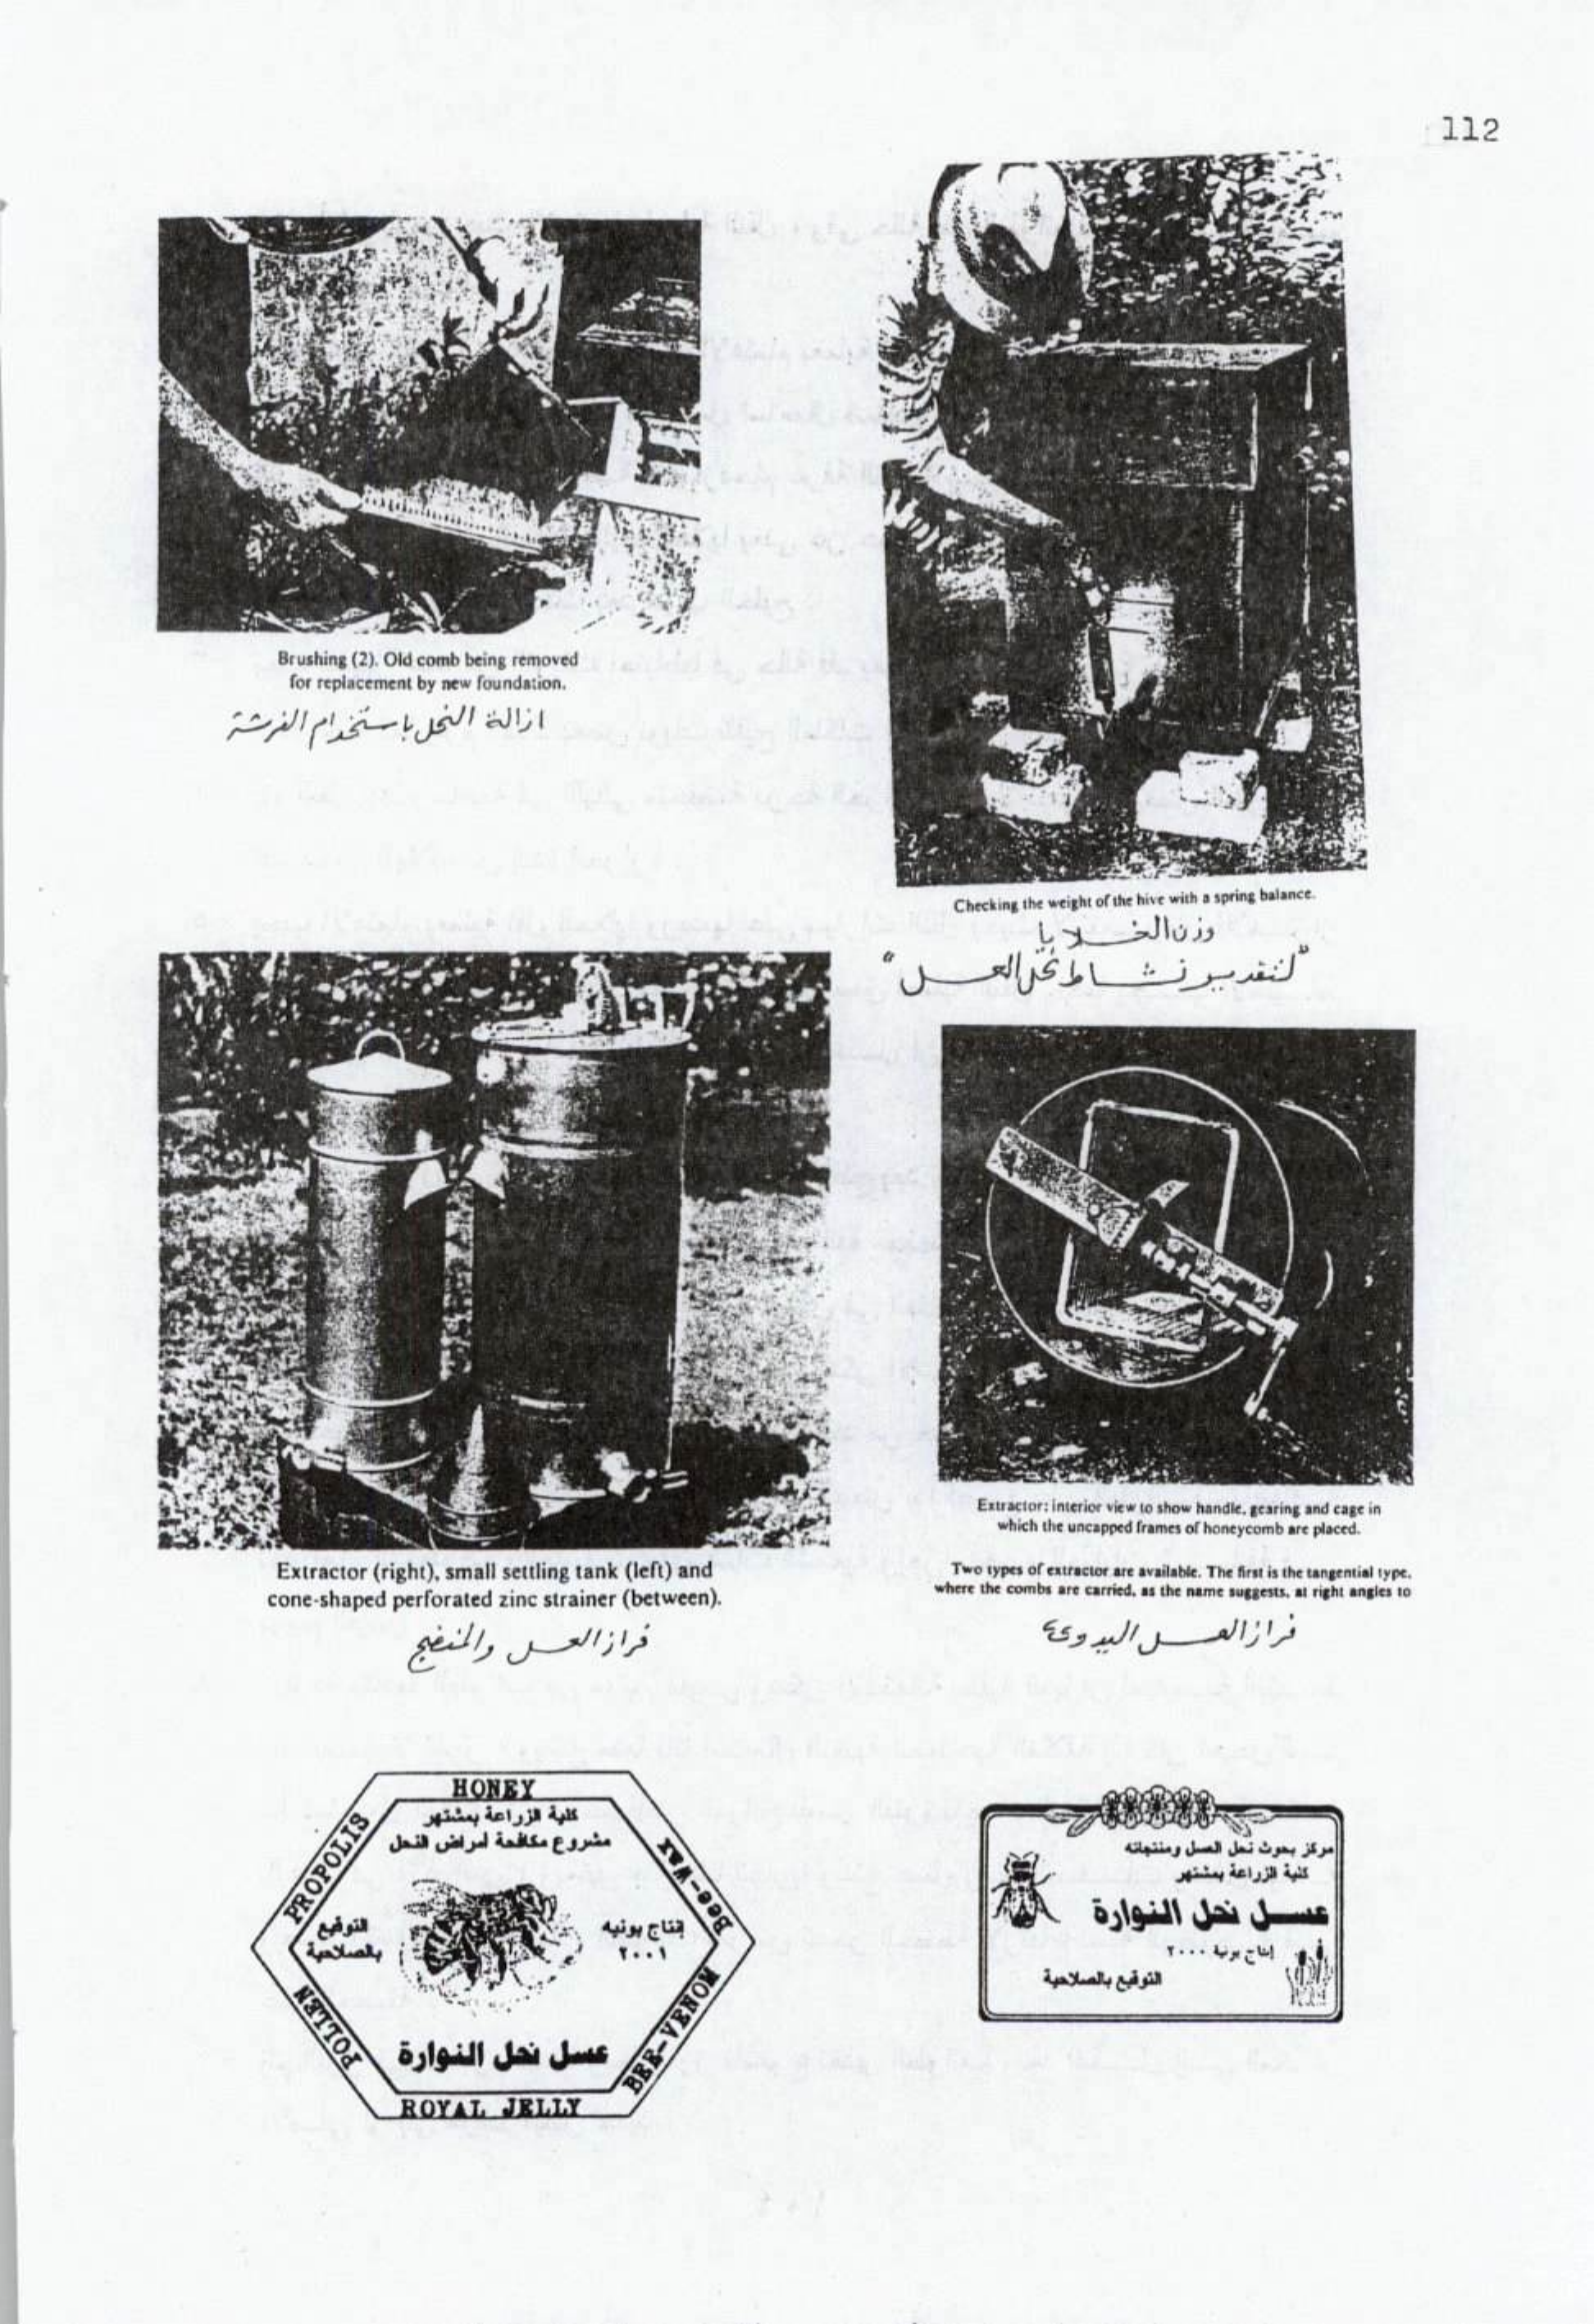 112
Brushing (2). Old comb being removed
for replacement by new foundation.
ازالة النحل باستخدام الفرشة
Checking the weight of the hive with a spring balance.
وزن الخلايا
"لتقدير نشاط نحل العسل"
Extractor (right), small settling tank (left) and
cone-shaped perforated zinc strainer (between).
فراز العسل والمنضج
Extractor: interior view to show handle, gearing and cage in
which the uncapped frames of honeycomb are placed.
Two types of extractor are available. The first is the tangential type,
where the combs are carried, as the name suggests, at right angles to
فراز العسل اليدوى
HONEY
كلية الزراعة بمشتهر
مشروع مكافحة أمراض النحل
PROPOLIS
Bee-Wax
التوقيع
بالصلاحية
إنتاج يونيه
٢٠٠١
POLLEN
BEE-VENOM
عسل نحل النوارة
ROYAL JELLY
مركز بحوث نحل العسل ومنتجاته
كلية الزراعة بمشتهر
عســل نحل النوارة
إنتاج يونية ٢٠٠٠
التوقيع بالصلاحية